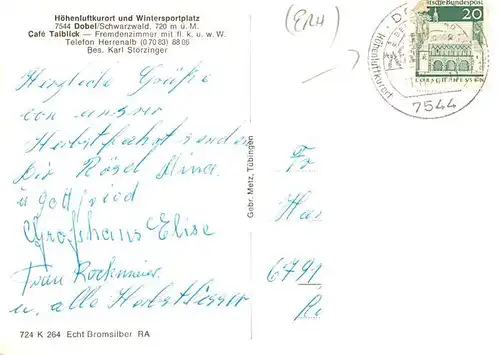 Höhenluftkurort und Wintersportplatz
7544 Dobel/Schwarzwald, 720 m ü. M.
Café Talblick — Fremdenzimmer mit fl. k. u. w. W.
Telefon Herrenalb (0 70 83) 88 06
Bes. Karl Storzinger
Herzliche Grüße
von unserer
Herbstfahrt senden
Dir Rösel Mina
u Gottfried
Großhans Elise
Frau Rockmeier
u. alle
724 K 264 Echt Bromsilber RA
Gebr. Metz, Tübingen
(ERH)
Deutsche Bundespost
20
LORSCH/HESSEN
Höhenluftkurort
7544
Fr
Ha
6791